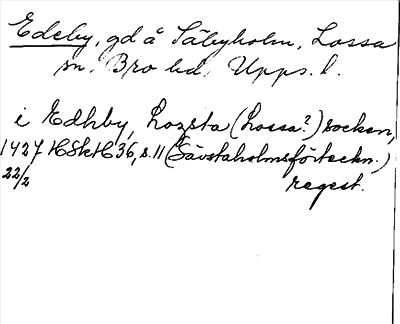 Edeby, gd å Säbyholm, Lossa
sn. Bro hd, Upps. l.
i Edhby, Lozsta (Lossa?) socken,
1427 HSkH 36, s. 11 (Sävstaholmsförteckn.)
22/2 regest.